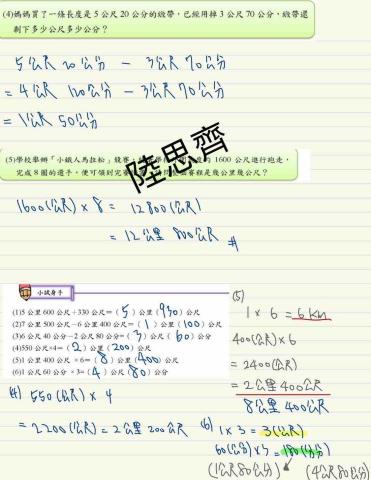 (4)媽媽買了一條長度是 5 公尺 20 公分的緞帶，已經用掉 3 公尺 70 公分，緞帶還
剩下多少公尺多少公分？
5公尺 20公分 - 3公尺 70公分
= 4公尺 120公分 - 3公尺 70公分
= 1公尺 50公分
陸思齊
(5)學校舉辦「小鐵人馬拉松」競賽， 1600 公尺進行跑走，
完成 8 圈的選手，便可領到完賽 賽程是幾公里幾公尺？
1600(公尺) × 8 = 12800(公尺)
= 12公里 800公尺 #
小試身手
(1)5 公里 600 公尺+330 公尺=( 5 )公里( 930 )公尺
(2)7 公里 500 公尺-6 公里 400 公尺=( 1 )公里( 100 )公尺
(3)6 公尺 40 公分-2 公尺 80 公分=( 3 )公尺( 60 )公分
(4)550 公尺×4=( 2 )公里( 200 )公尺
(5)1 公里 400 公尺 ×6=( 8 )公里( 400 )公尺
(6)1 公尺 60 公分 ×3=( 4 )公尺( 80 )公分
(5)
1 × 6 = 6 km
400(公尺) × 6
= 2400(公尺)
= 2公里 400公尺
8公里 400公尺
(4) 550(公尺) × 4
= 2200(公尺) = 2公里 200公尺
(6) 1 × 3 = 3(公尺)
60(公分) × 3 = 180(公分)
(1公尺80公分) (4公尺80公分)